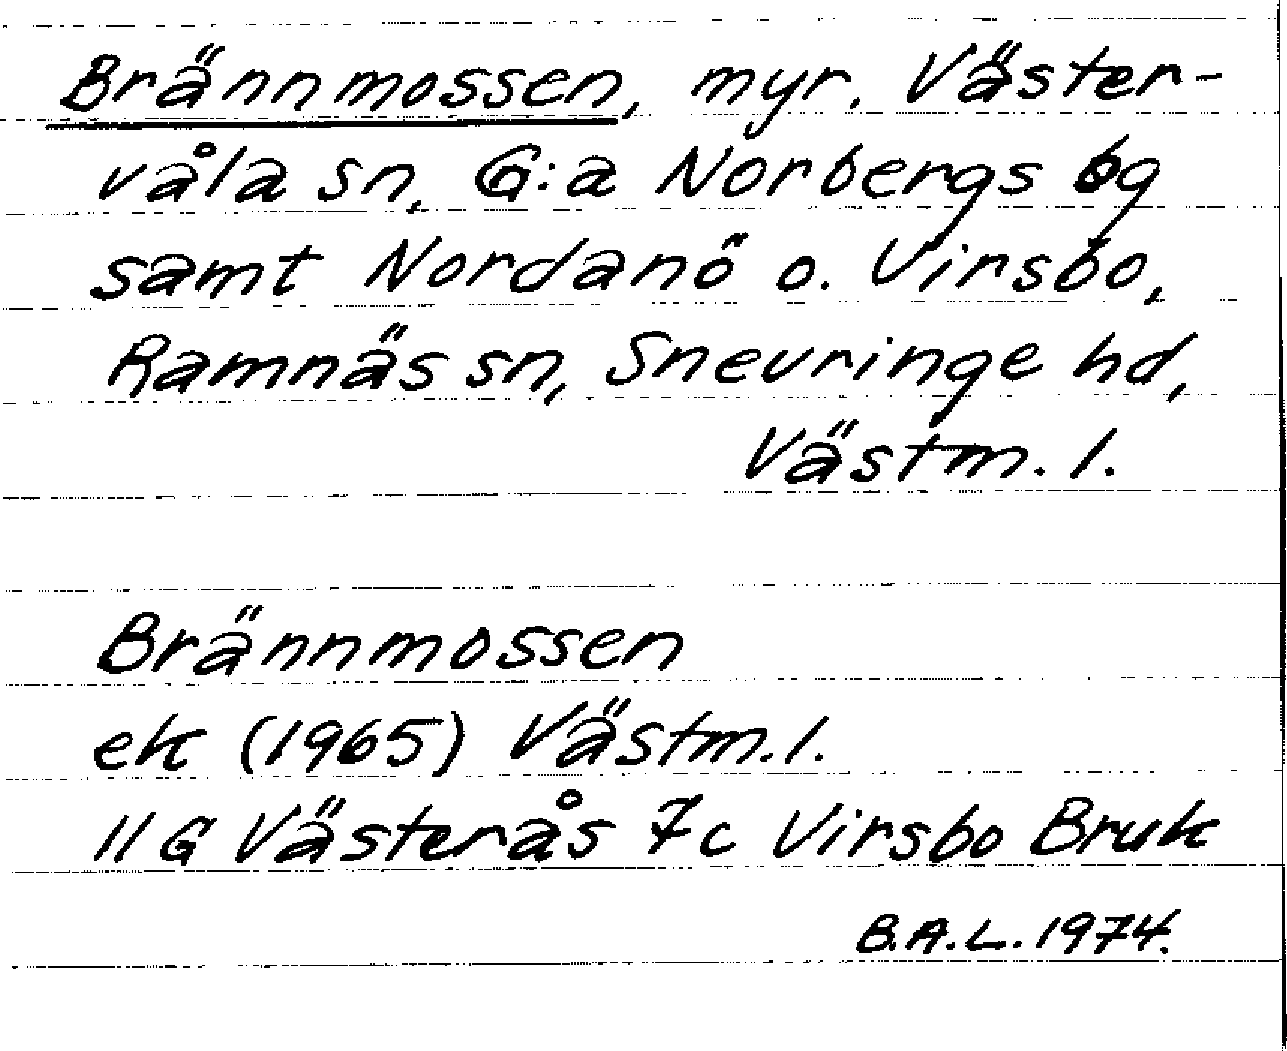 Brännmossen, myr. Väster-
våla sn, G:a Norbergs bg
samt Nordanö o. Virsbo,
Ramnäs sn, Snevringe hd,
Västm. l.
Brännmossen
ek (1965) Västm. l.
11 G Västerås 7c Virsbo Bruk
B.A.L. 1974.